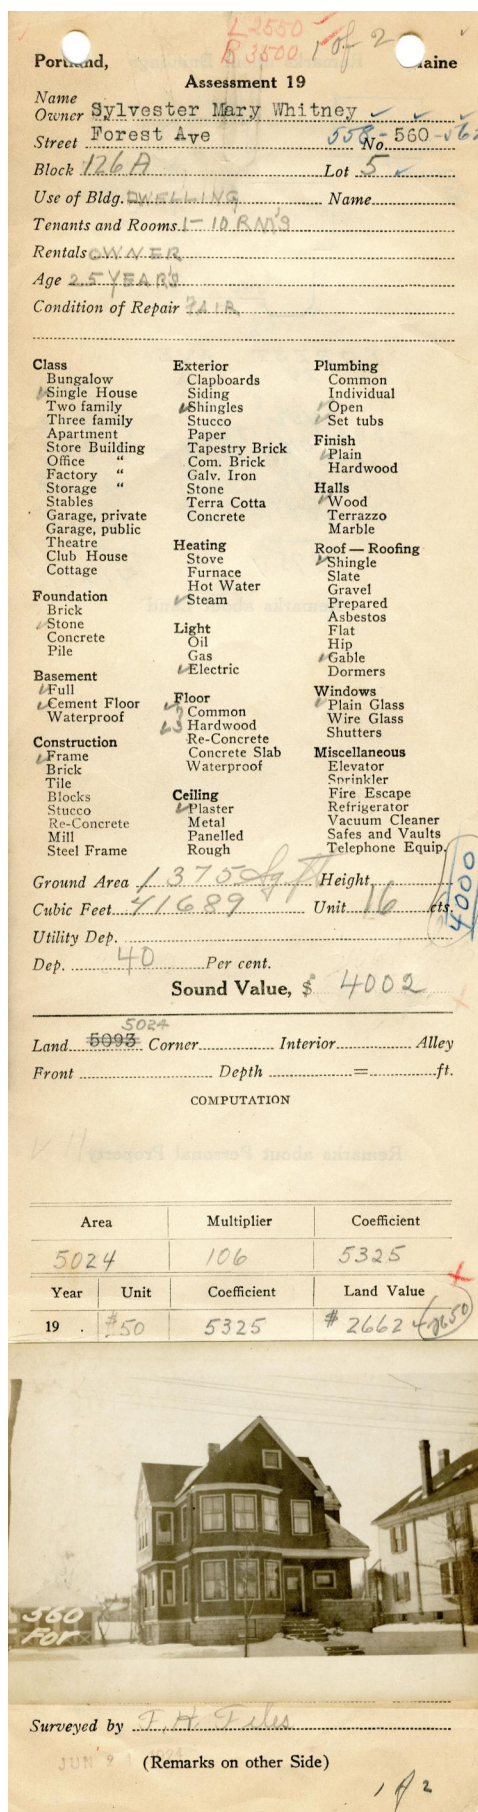 L 2550
B 3500 1 of 2
Portland, Maine
Assessment 19
Name
Owner Sylvester Mary Whitney
Street Forest Ave 558- No. 560-562
Block 126A Lot 5
Use of Bldg. DWELLING Name
Tenants and Rooms. 1-10 RM'S
Rentals OWNER
Age 25 YEAR'S
Condition of Repair FAIR
Class
Bungalow
Single House
Two family
Three family
Apartment
Store Building
Office "
Factory "
Storage "
Stables
Garage, private
Garage, public
Theatre
Club House
Cottage
Foundation
Brick
Stone
Concrete
Pile
Basement
Full
Cement Floor
Waterproof
Construction
Frame
Brick
Tile
Blocks
Stucco
Re-Concrete
Mill
Steel Frame
Exterior
Clapboards
Siding
Shingles
Stucco
Paper
Tapestry Brick
Com. Brick
Galv. Iron
Stone
Terra Cotta
Concrete
Heating
Stove
Furnace
Hot Water
Steam
Light
Oil
Gas
Electric
Floor
7 Common
3 Hardwood
Re-Concrete
Concrete Slab
Waterproof
Ceiling
Plaster
Metal
Panelled
Rough
Plumbing
Common
Individual
Open
Set tubs
Finish
Plain
Hardwood
Halls
Wood
Terrazzo
Marble
Roof — Roofing
Shingle
Slate
Gravel
Prepared
Asbestos
Flat
Hip
Gable
Dormers
Windows
Plain Glass
Wire Glass
Shutters
Miscellaneous
Elevator
Sprinkler
Fire Escape
Refrigerator
Vacuum Cleaner
Safes and Vaults
Telephone Equip.
Ground Area 1375 Sq ft Height
Cubic Feet 41689 Unit 16 cts.
4000
Utility Dep.
Dep. 40 Per cent.
Sound Value, $ 4002
5024
Land 5093 Corner Interior Alley
Front Depth = ft.
COMPUTATION
Area Multiplier Coefficient
5024 106 5325
Year Unit Coefficient Land Value
19 . $50 5325 $2662 2650
560
For
Surveyed by F. H. Files
(Remarks on other Side)
1 of 2